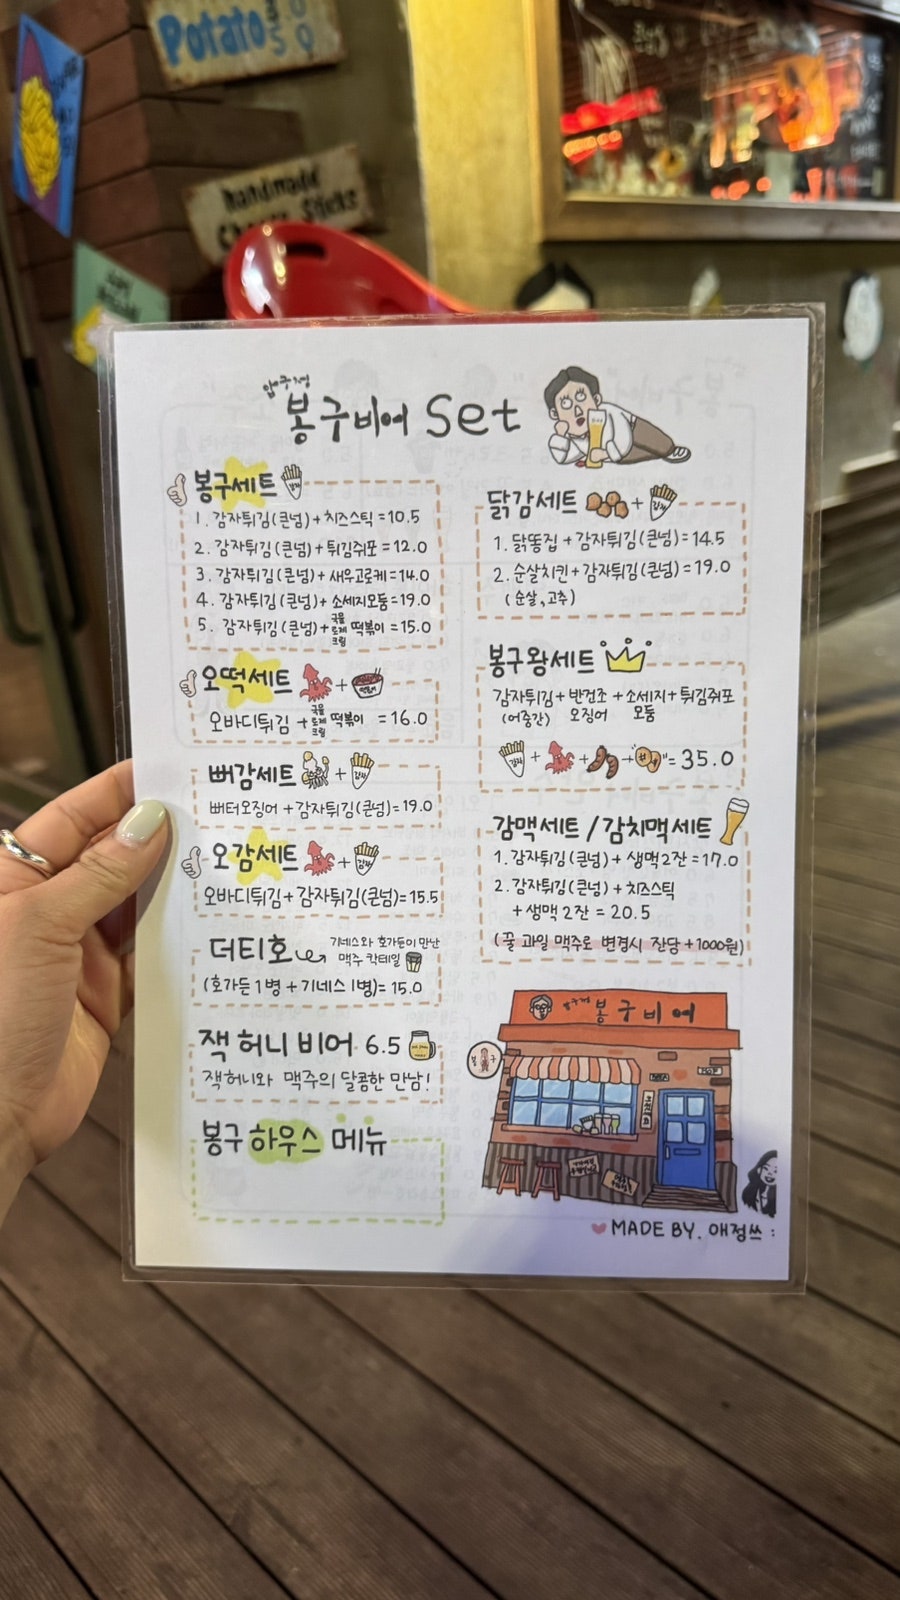 Potato
handmade
Sticks
압구정
봉구비어 Set
봉구세트
감자
1. 감자튀김(큰넘)+치즈스틱=10.5
2. 감자튀김(큰넘)+튀김쥐포=12.0
3. 감자튀김(큰넘)+새우고로케=14.0
4. 감자튀김(큰넘)+소세지모둠=19.0
5. 감자튀김(큰넘)+국물 로제 크림 떡볶이=15.0
오떡세트 +
오바디튀김 +국물 로제 크림 떡볶이 =16.0
뻐감세트 + 감자
뻐터오징어+감자튀김(큰넘)=19.0
오감세트 + 감자
오바디튀김+감자튀김(큰넘)=15.5
더티호 기네스와 호가든이 만난
맥주 칵테일
(호가든1병+기네스1병)=15.0
잭허니비어 6.5
잭허니와 맥주의 달콤한 만남!
봉구 하우스 메뉴
닭감세트 + 감자
1. 닭똥집+감자튀김(큰넘)=14.5
2. 순살치킨+감자튀김(큰넘)=19.0
(순살,고추)
봉구왕세트
감자튀김+반건조+소세지+튀김쥐포
(어중간) 오징어 모둠
감자 + + + =35.0
감맥세트/감치맥세트
1. 감자튀김(큰넘)+생맥2잔=17.0
2. 감자튀김(큰넘)+치즈스틱
+생맥2잔=20.5
(꿀 과일 맥주로 변경시 잔당+1000원)
압구정 봉구비어
봉구
MADE BY. 애정쓰: